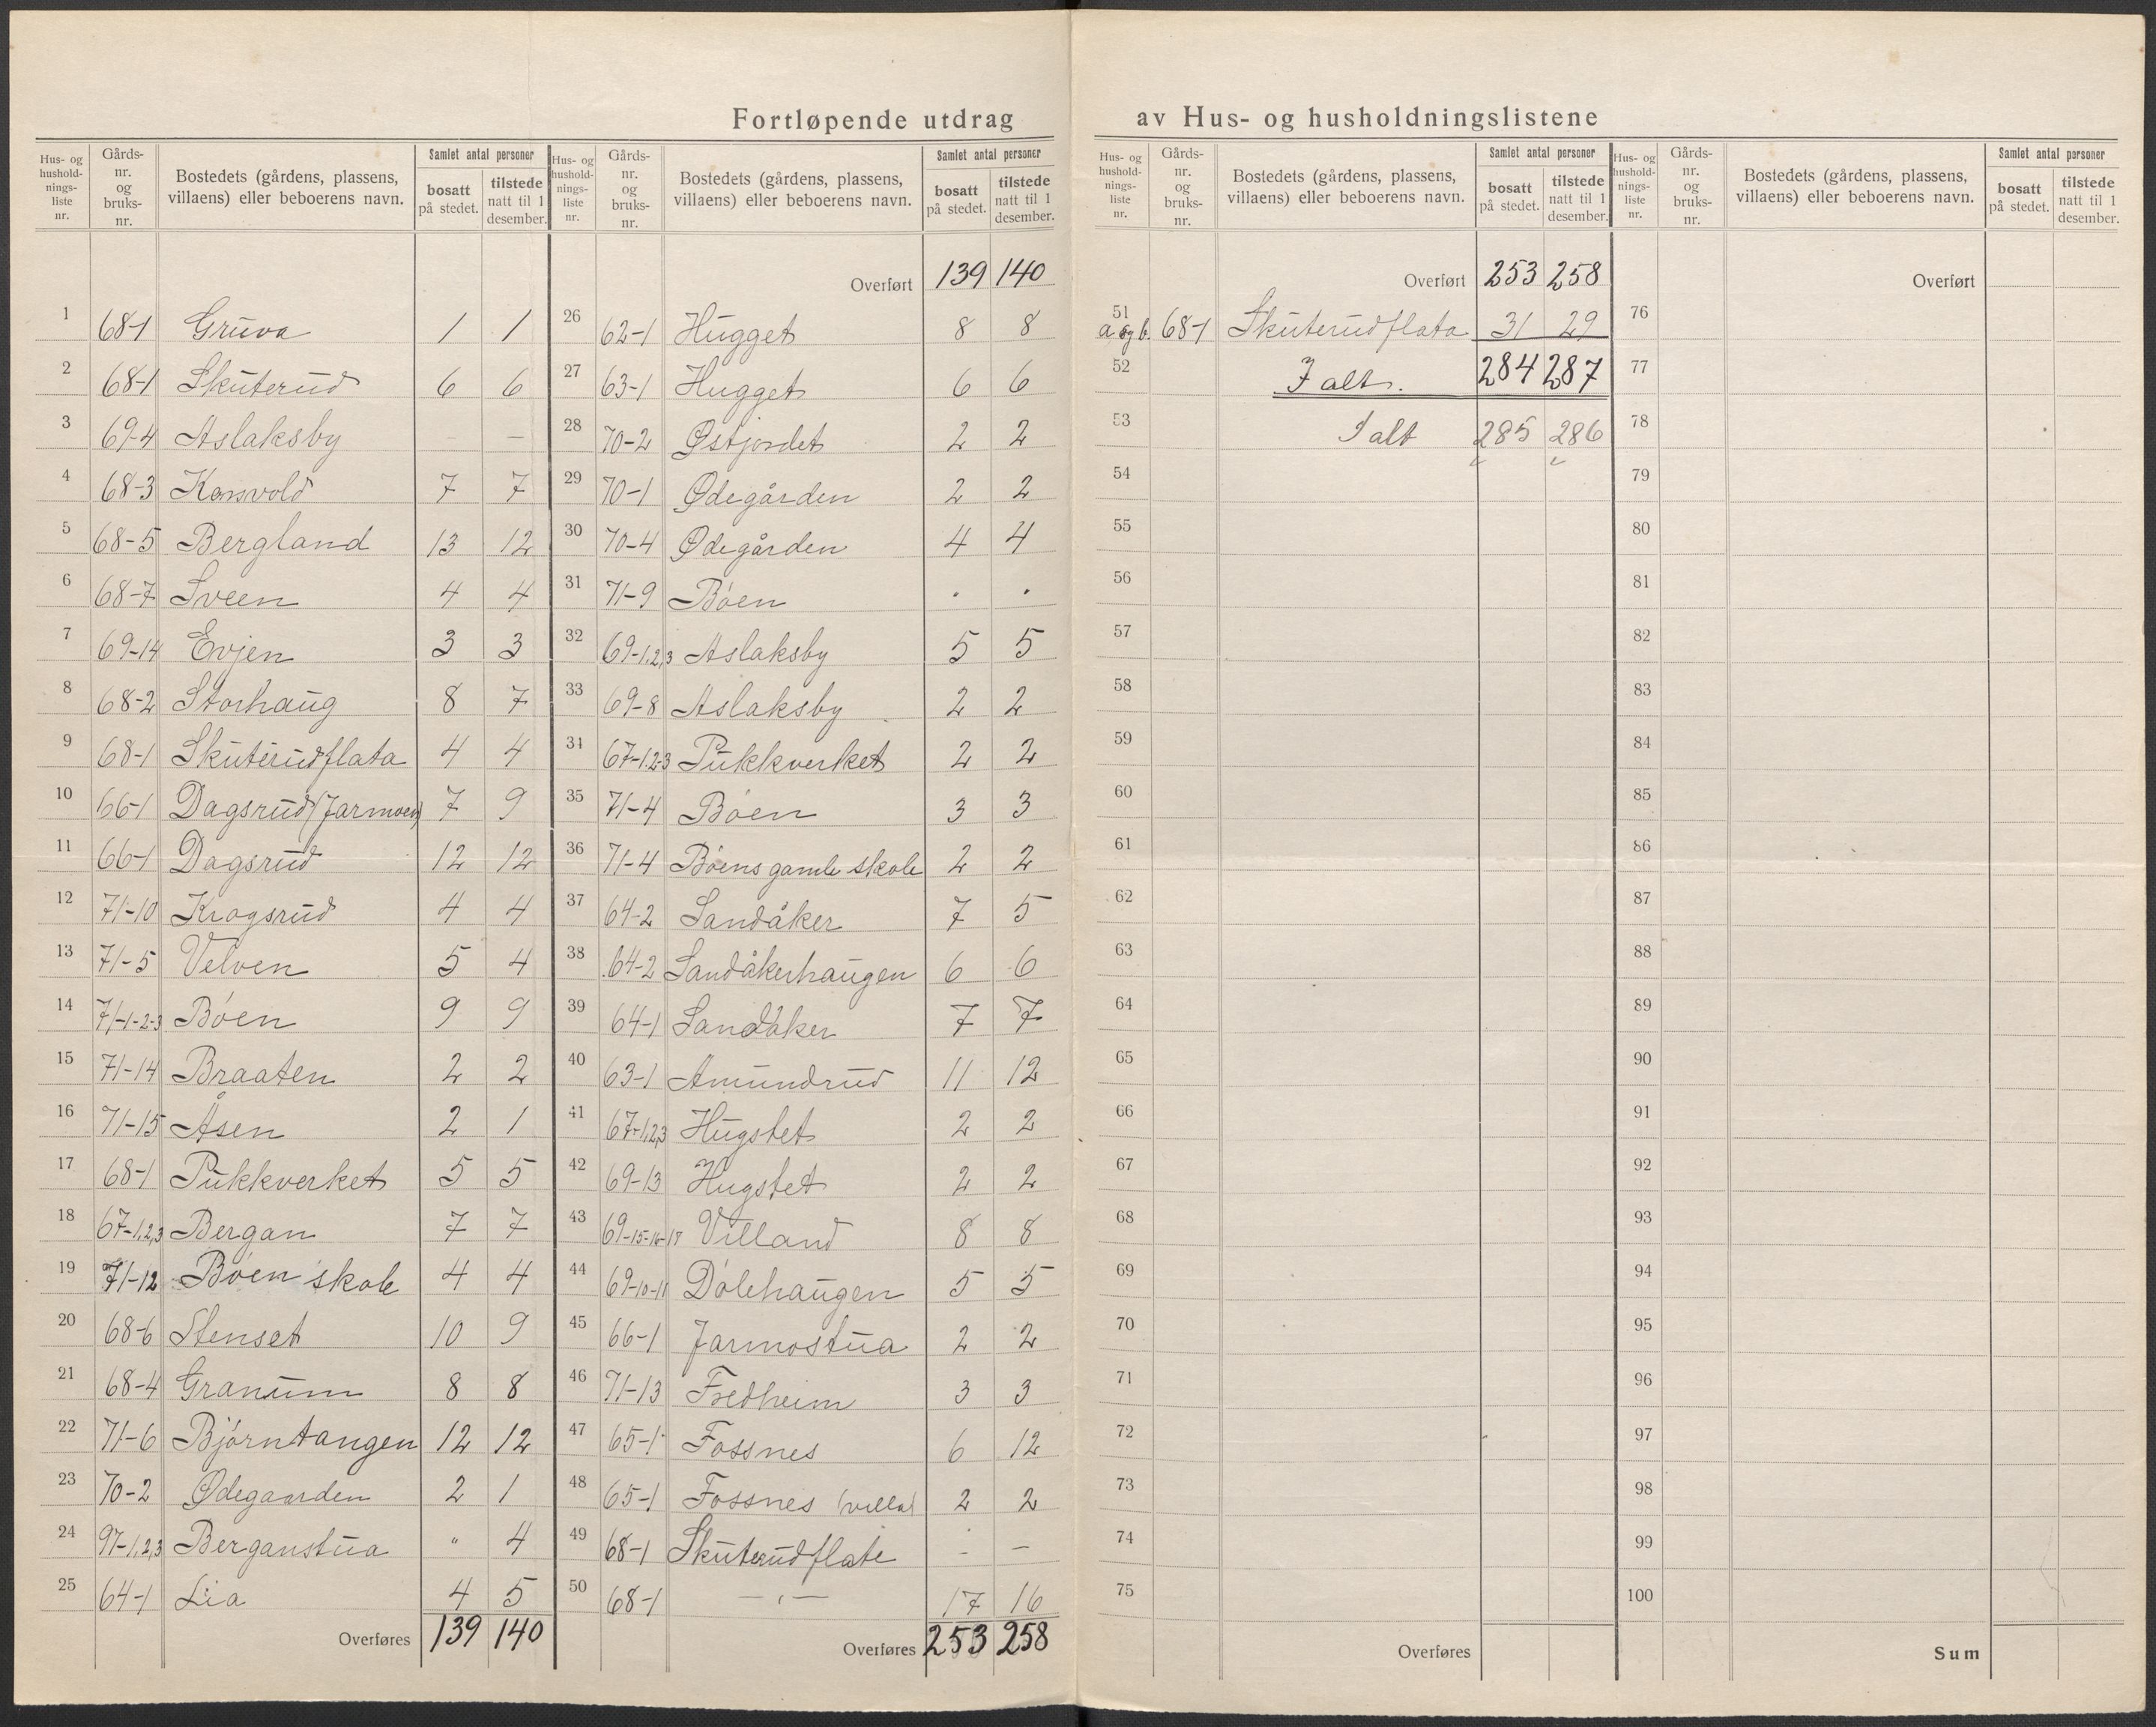 Fortløpende utdrag av Hus- og husholdningslistene
Hus- og hushold-nings-liste nr. Gårds-nr. og bruks-nr. Bostedets (gårdens, plassens, villaens) eller beboerens navn. Samlet antal personer bosatt på stedet. tilstede natt til 1 desember.
1 68-1 Gruva 1 1
2 68-1 Skuterud 6 6
3 69-4 Aslaksby — —
4 68-3 Karsvold 7 7
5 68-5 Bergland 13 12
6 68-7 Sveen 4 4
7 69-14 Evjen 3 3
8 68-2 Storhaug 8 7
9 68-1 Skuterudflata 4 4
10 66-1 Dagsrud (Jarmoen) 7 9
11 66-1 Dagsrud 12 12
12 71-10 Krogsrud 4 4
13 71-5 Velven 5 4
14 71-1-2-3 Bøen 9 9
15 71-14 Braaten 2 2
16 71-15 Åsen 2 1
17 68-1 Pukkverket 5 5
18 67-1,2,3 Bergan 7 7
19 71-12 Bøen skole 4 4
20 68-6 Stenset 10 9
21 68-4 Granum 8 8
22 71-6 Bjørntangen 12 12
23 70-2 Ødegaarden 2 1
24 97-1,2,3 Berganstua " 4
25 64-1 Lia 4 5
Overføres 139 140
Hus- og hushold-nings-liste nr. Gårds-nr. og bruks-nr. Bostedets (gårdens, plassens, villaens) eller beboerens navn. Samlet antal personer bosatt på stedet. tilstede natt til 1 desember.
Overført 139 140
26 62-1 Hugget 8 8
27 63-1 Hugget 6 6
28 70-2 Østjordet 2 2
29 70-1 Ødegården 2 2
30 70-4 Ødegården 4 4
31 71-9 Bøen . .
32 69-1,2,3 Aslaksby 5 5
33 69-8 Aslaksby 2 2
34 67-1.2-3 Pukkverket 2 2
35 71-4 Bøen 3 3
36 71-4 Bøens gamle skole 2 2
37 64-2 Sandåker 7 5
38 64-2 Sandåkerhaugen 6 6
39 64-1 Sandåker 7 7
40 63-1 Amundrud 11 12
41 67-1,2,3 Hugstet 2 2
42 69-13 Hugstet 2 2
43 69-15-16-17 Villand 8 8
44 69-10-11 Dølehaugen 5 5
45 66-1 Jarmostua 2 2
46 71-13 Fredheim 3 3
47 65-1 Fossnes 6 12
48 65-1 Fossnes (villa) 2 2
49 68-1 Skuterudflate - —
50 68-1 —"— 17 16
Overføres 253 258
Hus- og hushold-nings-liste nr. Gårds-nr. og bruks-nr. Bostedets (gårdens, plassens, villaens) eller beboerens navn. Samlet antal personer bosatt på stedet. tilstede natt til 1 desember.
Overført 253 258
51 a og b. 68-1 Skuterudflata 31 29
52 I alt. 284 287
53 I alt 285 286
54
55
56
57
58
59
60
61
62
63
64
65
66
67
68
69
70
71
72
73
74
75
Overføres
Hus- og hushold-nings-liste nr. Gårds-nr. og bruks-nr. Bostedets (gårdens, plassens, villaens) eller beboerens navn. Samlet antal personer bosatt på stedet. tilstede natt til 1 desember.
Overført
76
77
78
79
80
81
82
83
84
85
86
87
88
89
90
91
92
93
94
95
96
97
98
99
100
Sum